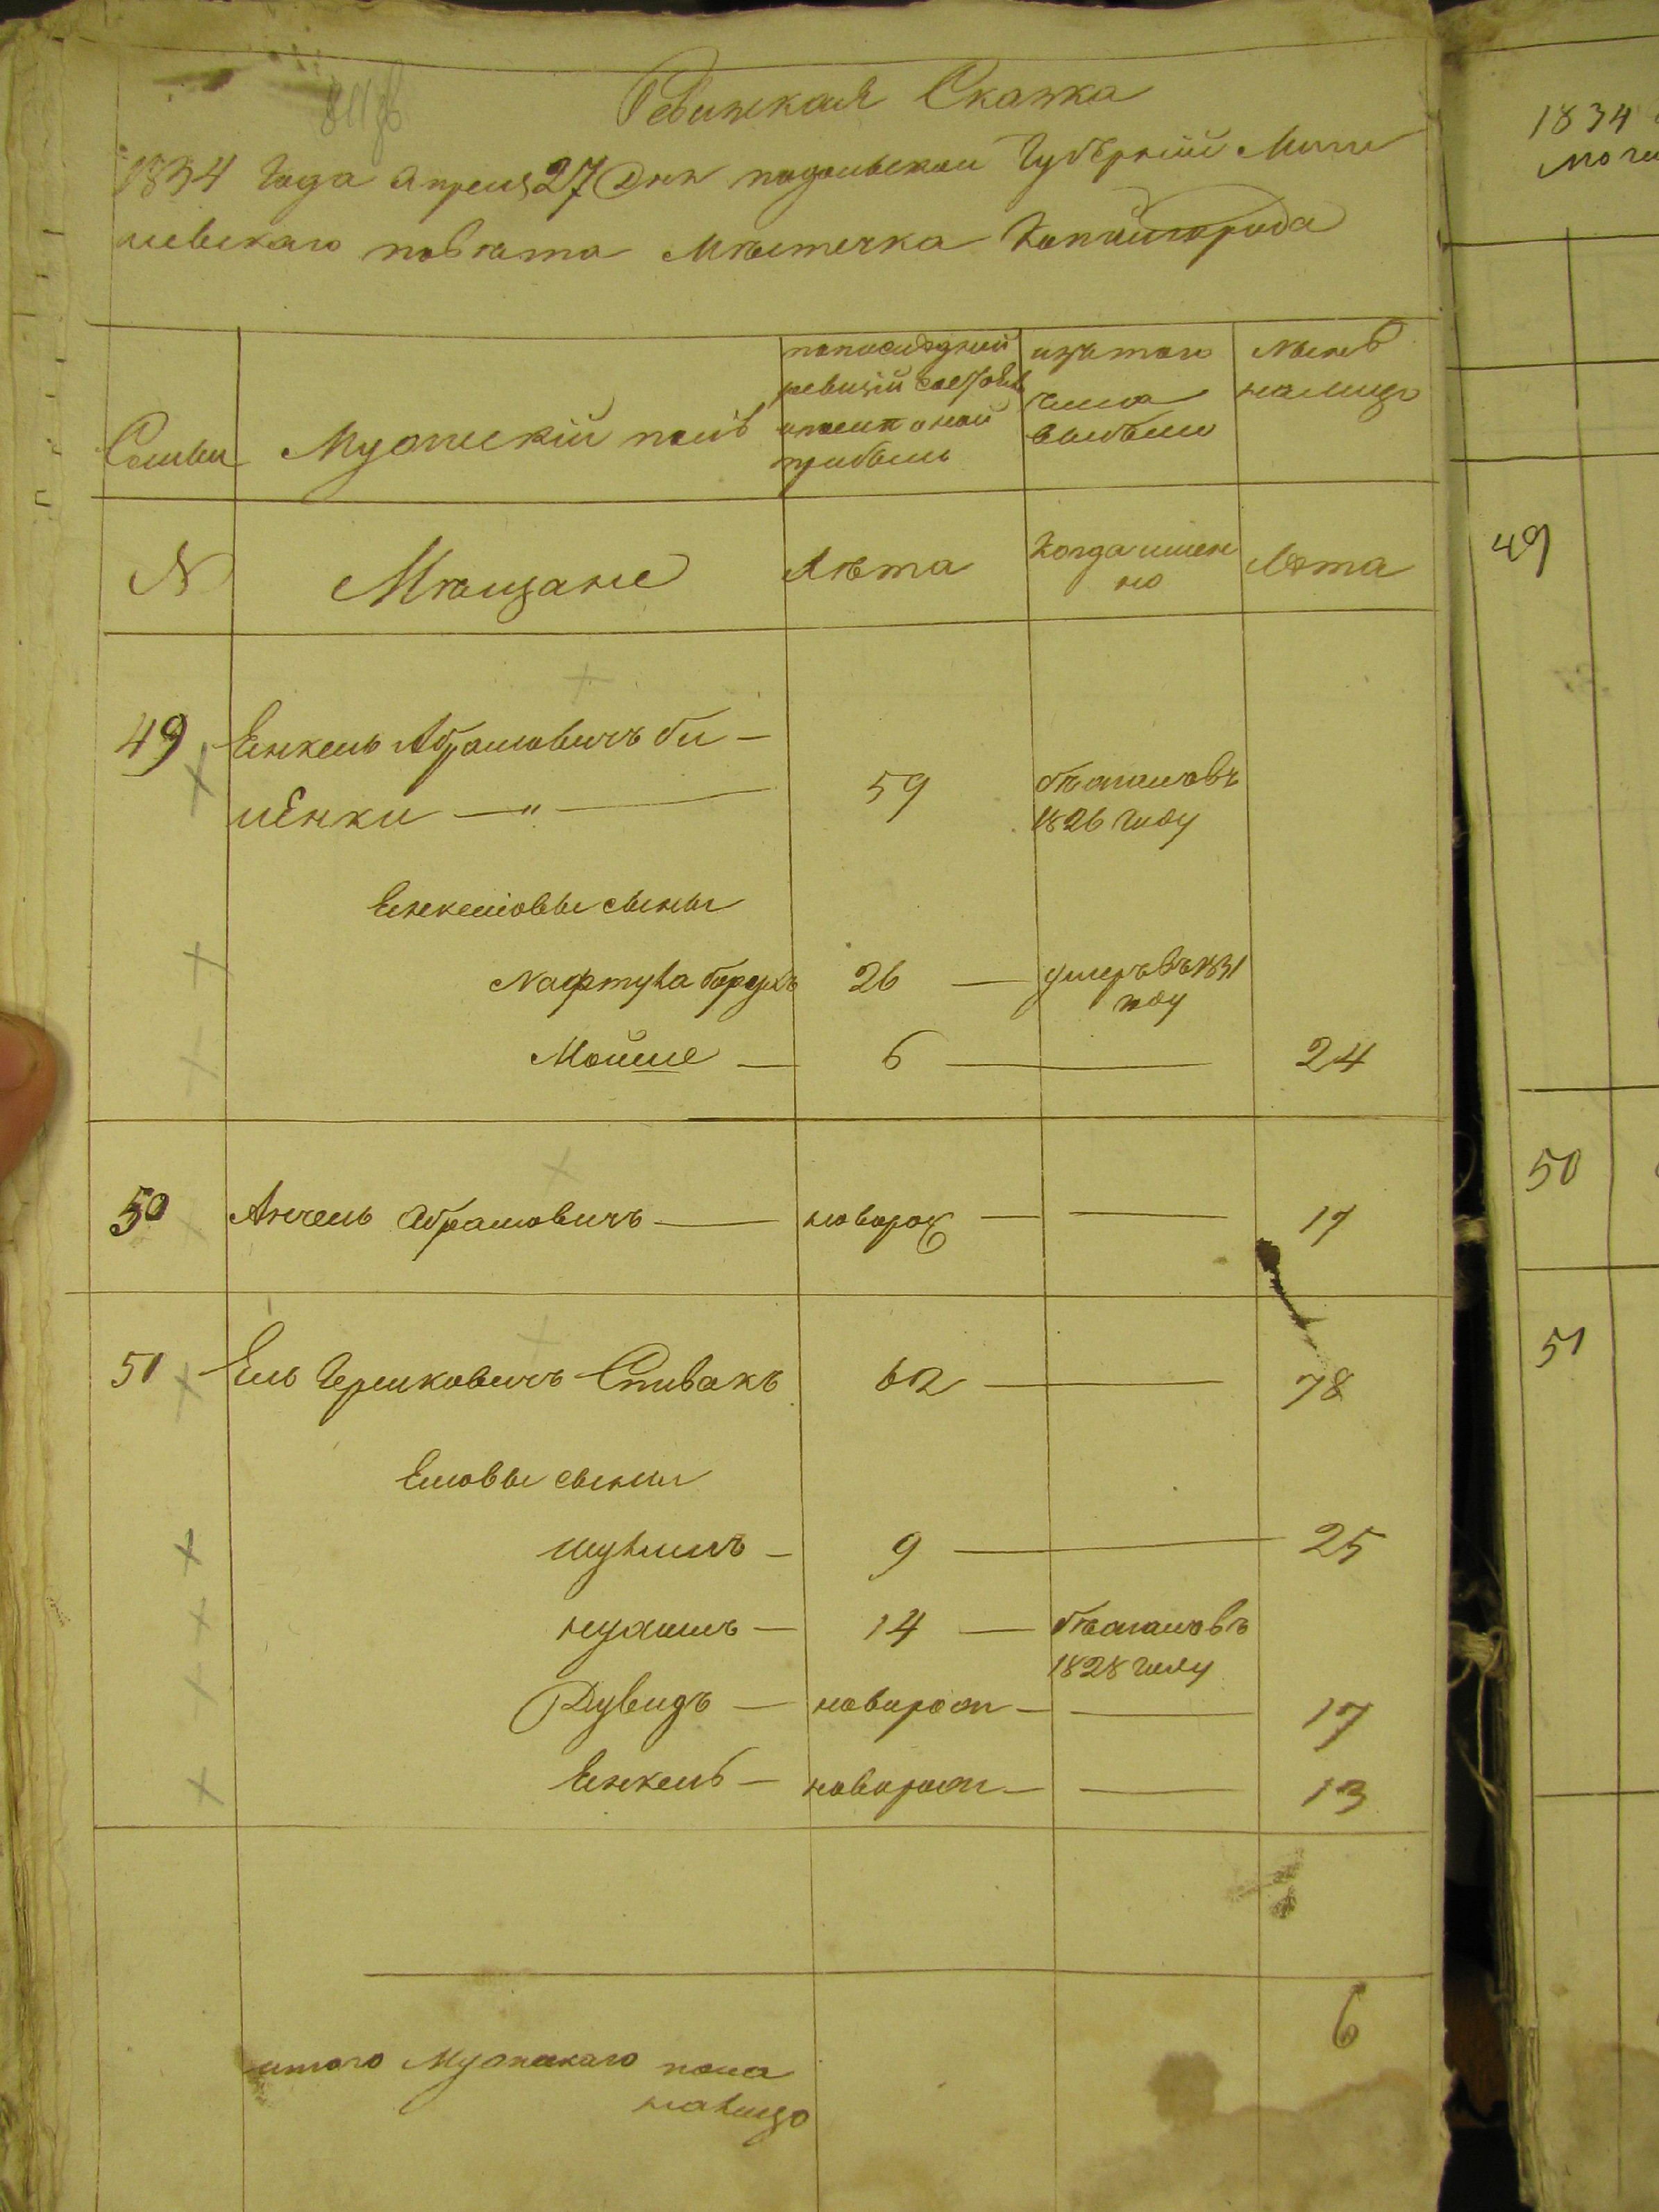 Ревижкая Сказка
1834 года апреля 27 Дня подольской Губѣрнии Моги
левскаго повѣта Мѣстечка Копайгорода
Семьи
Мужескій полъ
попослѣдней
ревизіи состояло
и после оной
прибыло
изъ того
числа
выбыло
Нынѣ
налицо
N
Мѣщане
Лѣта
Когда имен
но
Лѣта
49
Енкель Абрамовичъ би —
ленки — " —
59
бѣжалъ въ
1826 году
Енкелювы сыны
Нафтула борухъ
26 —
умеръ въ 1831
году
Мойше —
6 —
24
50
Анчель Абрамовичъ —
новорож —
—
17
51
Ель Гершковичъ Спивакъ
62 —
78
Еловы сыны
шулимъ —
9 —
25
нухимъ —
14 —
бѣжалъ въ
1828 году
Дувидъ —
новорож —
—
17
Енкель —
новорож —
—
13
6
итого Мужескаго пола
налицо
1834
моги
49
50
51